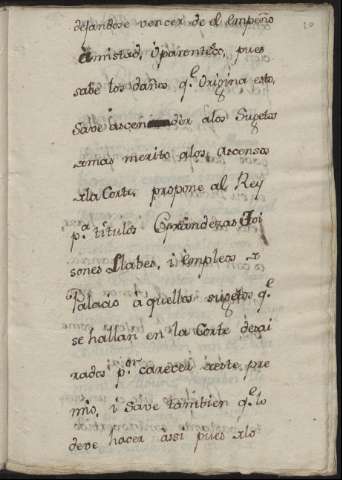 dejandose vencer de el empeño
Amistad, ò parentesco, pues
sabe los daños q.e origina esto,
Save ascender a los Sugetos
de mas merito a los Ascensos
de la Corte, propone al Rey
p.a titulos Grandezas Toi
sones Llabes, i empleos de
Palacio à quellos sugetos q.e
se hallan en la Corte desai
rados p.r carecer de este pre
mio, i Save tambien q.e lo
deve hacer assi pues de lo